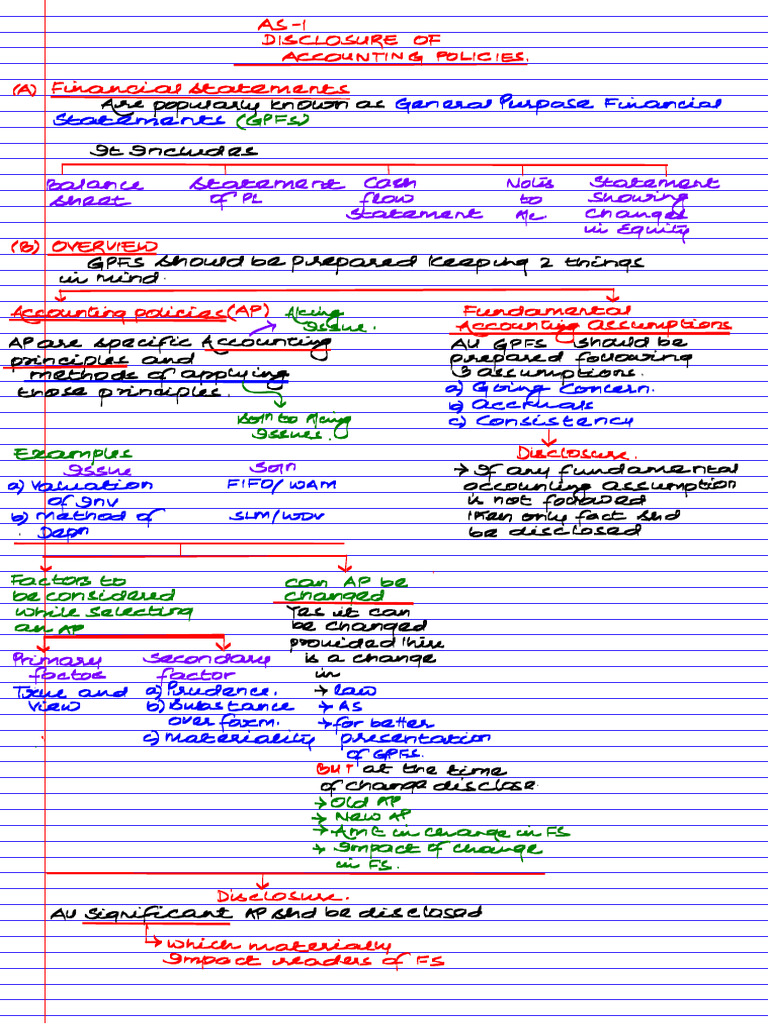 AS-1
DISCLOSURE OF
ACCOUNTING POLICIES.
(A) Financial Statements
Are popularly known as General Purpose Financial
Statements (GPFS)
It Includes
Balance
Sheet
Statement
of PL
Cash
flow
Statement
Notes
to
A/c
Statement
Showing
Changed
in Equity
(B) OVERVIEW
GPFS should be prepared keeping 2 things
in mind.
Accounting policies (AP)
A/cing
Issue.
AP are specific Accounting
principles and
methods of applying
those principles.
Soln to A/cing
Issues.
Examples
Issue
Soln
a) Valuation
of Inv
FIFO/WAM
b) Method of
Depn
SLM/WDV
Fundamental
Accounting Assumptions
All GPFS should be
prepared following
3 assumptions.
a) Going Concern.
b) Accruals
c) Consistency
Disclosure.
→ If any fundamental
accounting assumption
is not followed
then only fact shd
be disclosed
Factors to
be considered
while selecting
an AP
Primary
factor
True and
view
Secondary
factor
a) Prudence.
b) Substance
over form.
c) Materiality
Can AP be
changed
Yes it can
be changed
provided there
is a change
in
→ law
→ AS
→ for better
presentation
of GPFS.
BUT at the time
of change disclose
→ Old AP
→ New AP
→ Amt in change in FS
→ Impact of change
in FS.
Disclosure.
All Significant AP shd be disclosed
→ which materially
Impact readers of FS